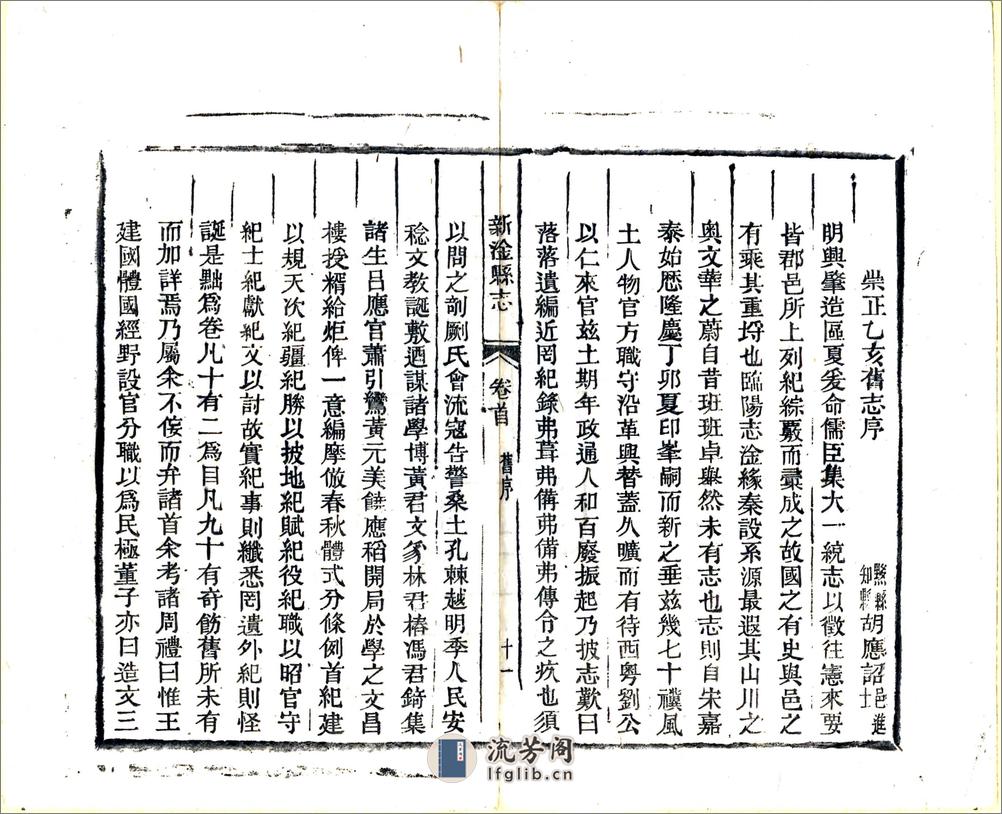 崇正乙亥舊志序
黟縣知縣胡應詔邑進士
明興肇造區夏爰命儒臣集大一統志以徵往憲來要
皆郡邑所上列紀綜覈而彚成之故國之有史與邑之
有乘其重埒也臨陽志淦緣秦設系源最遐其山川之
奥文華之蔚自昔班班卓犖然未有志也志則自宋嘉
泰始歷隆慶丁卯夏印峯嗣而新之垂茲幾七十禩風
土人物官方職守沿革興替蓋久曠而有待西粤劉公
以仁來官兹土期年政通人和百廢振起乃披志歎曰
落落遺編近罔紀錄弗葺弗備弗傳令之疚也須
新淦縣志
卷首
舊序
十一
以間之剞劂氏會流寇告警桑土孔棘越明季人民安
稔文教誕敷廼謀諸學博黃君文豸林君椿馮君錡集
諸生呂應官蕭引鷟黃元美饒應稻開局於學之文昌
樓授糈給炬俾一意編摩倣春秋體式分條例首紀建
以規天次紀疆紀勝以披地紀賦紀役紀職以昭官守
紀士紀獻紀文以討故實紀事則纖悉罔遺外紀則怪
誕是黜爲卷凡十有二爲目凡九十有奇飭舊所未有
而加詳焉乃屬余不佞而弁諸首余考諸周禮曰惟王
建國體國經野設官分職以爲民極董子亦曰造文三
流芳阁
lfglib.cn